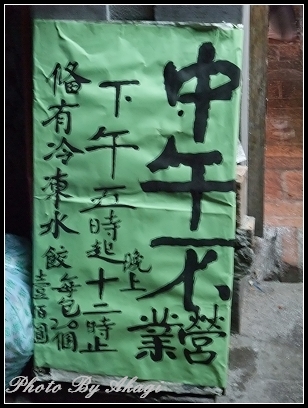 中午不營業
下午五時起
晚上十二時止
備有冷凍水餃
每包20個
壹佰圓
Photo By Akagi